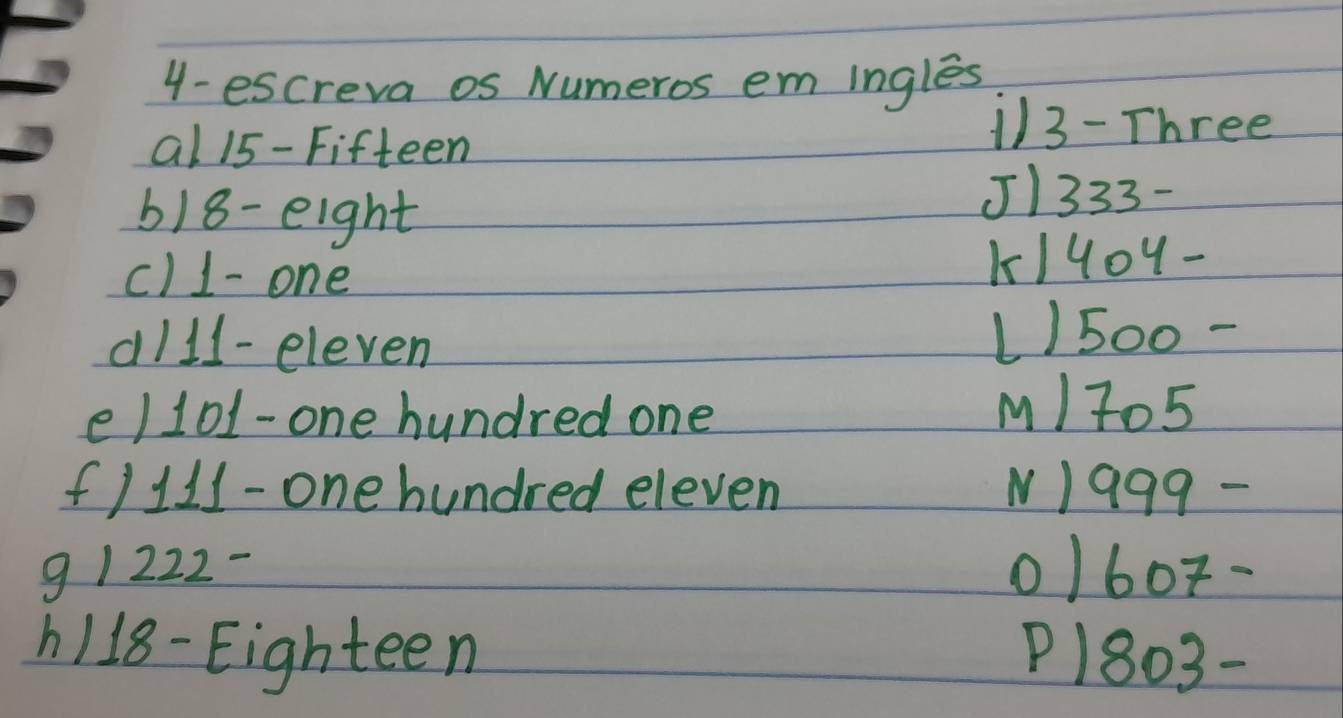 4-escreva os Numeros em inglês
a) 15-Fifteen
b) 8-eight
c) 1-one
d) 11-eleven
e) 101-one hundred one
f) 111-one hundred eleven
g) 222-
h) 18-Eighteen
i) 3-Three
J) 333-
K) 404-
L) 500-
M) 705
N) 999-
O) 607-
P) 803-